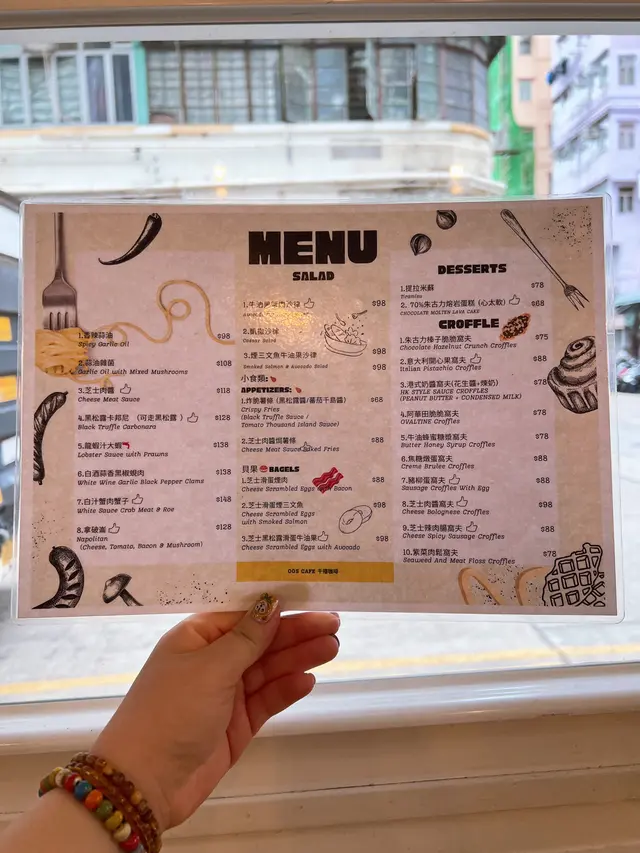 MENU
1.香辣蒜油 $98
Spicy Garlic Oil
2.蒜油雜菌 $108
Garlic Oil with Mixed Mushrooms
3.芝士肉醬 $118
Cheese Meat Sauce
4.黑松露卡邦尼 （可走黑松露） $128
Black Truffle Carbonara
5.龍蝦汁大蝦 $138
Lobster Sauce with Prawns
6.白酒蒜香黑椒蜆肉 $138
White Wine Garlic Black Pepper Clams
7.白汁蟹肉蟹子 $148
White Sauce Crab Meat & Roe
8.拿破崙 $128
Napolitan
(Cheese, Tomato, Bacon & Mushroom)
SALAD
$98
2.凱撒沙律
Caesar Salad
$98
3.煙三文魚牛油果沙律
Smoked Salmon & Avocado Salad $98
小食類:
APPETIZERS:
1.炸脆薯條 (黑松露醬/蕃茄千島醬) $68
Crispy Fries
(Black Truffle Sauce /
Tomato Thousand Island Sauce)
2.芝士肉醬焗薯條 $88
Cheese Meat Sauce Baked Fries
貝果 BAGELS
1.芝士滑蛋煙肉 $88
Cheese Scrambled Eggs with Bacon
2.芝士滑蛋煙三文魚 $98
Cheese Scrambled Eggs
with Smoked Salmon
3.芝士黑松露滑蛋牛油果 $98
Cheese Scrambled Eggs with Avocado
CAFE 千禧咖啡
DESSERTS
1.提拉米蘇 $78
Tiramisu
2. 70%朱古力熔岩蛋糕 (心太軟) $68
CHOCOLATE MOLTEN LAVA CAKE
CROFFLE
1.朱古力榛子脆脆窩夫 $75
Chocolate Hazelnut Crunch Croffles
2.意大利開心果窩夫 $88
Italian Pistachio Croffles
3.港式奶醬窩夫(花生醬+煉奶) $78
HK STYLE SAUCE CROFFLES
(PEANUT BUTTER + CONDENSED MILK)
4.阿華田脆脆窩夫 $78
OVALTINE Croffles
5.牛油蜂蜜糖漿窩夫 $78
Butter Honey Syrup Croffles
6.焦糖燉蛋窩夫 $88
Creme Brulee Croffles
7.豬柳蛋窩夫 $88
Sausage Croffles With Egg
8.芝士肉醬窩夫 $98
Cheese Bolognese Croffles
9.芝士辣肉腸窩夫 $88
Cheese Spicy Sausage Croffles
10.紫菜肉鬆窩夫 $78
Seaweed And Meat Floss Croffles